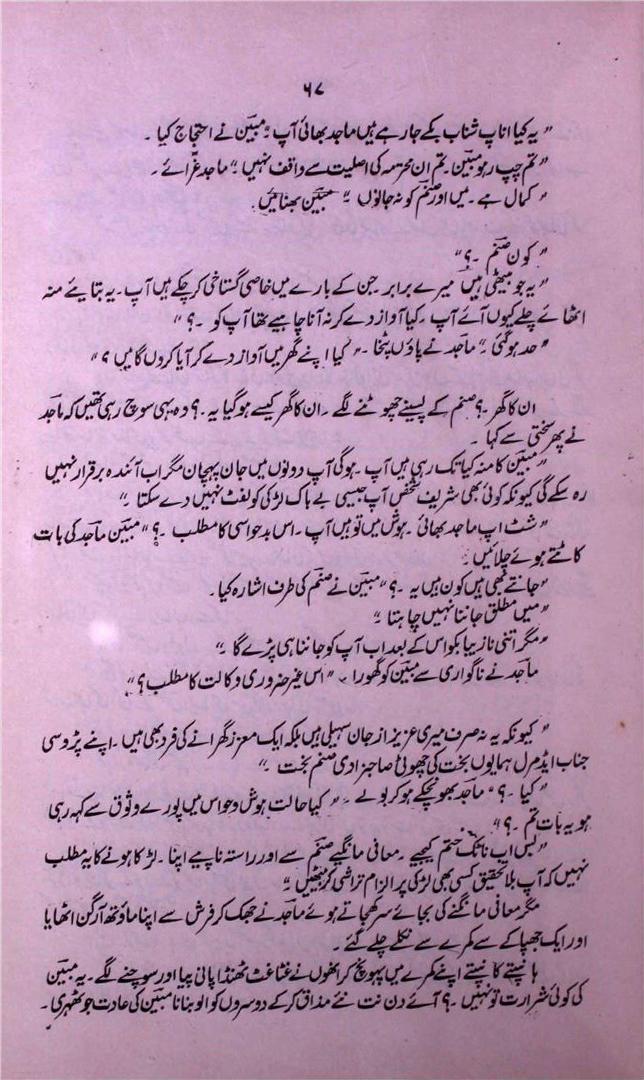 ۶۷
"یہ کیا اناپ شناپ بکے جا رہے ہیں ماجد بھائی آپ" مبین نے احتجاج کیا ۔
"تم چپ رہو مبین۔ تم ان محترمہ کی اصلیت سے واقف نہیں" ماجد غرّائے ۔
"کمال ہے ۔ میں اور صنم کو نہ جانوں" مبین بھنائیں۔
"کون صنم ۔؟"
"یہ جو بیٹھی ہیں میرے برابر ۔ جن کے بارے میں خاصی گستاخی کر چکے ہیں آپ ۔ یہ بتایئے منہ
اٹھائے چلے کیوں آئے آپ ۔ کیا آواز دے کر نہ آنا چاہیے تھا آپ کو ۔؟"
"حد ہو گئی" ماجد نے پاؤں پٹخا ۔ "کیا اپنے گھر میں آواز دے کر آیا کروں گا میں؟"
ان کا گھر ۔؟ صنم کے پسینے چھوٹنے لگے ۔ ان کا گھر کیسے ہو گیا یہ ۔؟ وہ یہی سوچ رہی تھیں کہ ماجد
نے پھر سختی سے کہا ۔
"مبین کا منہ کیا تک رہی ہیں آپ ۔ ہوگی آپ دونوں میں جان پہچان مگر اب آئندہ برقرار نہیں
رہ سکے گی کیونکہ کوئی بھی شریف شخص آپ جیسی بے باک لڑکی کو لفٹ نہیں دے سکتا"
"شٹ اپ ماجد بھائی ۔ ہوش میں تو ہیں آپ ۔ اس بدحواسی کا مطلب ۔؟" مبین ماجد کی بات
کاٹتے ہوئے چلائیں۔
"جانتے بھی ہیں کون ہیں یہ ۔؟" مبین نے صنم کی طرف اشارہ کیا۔
"میں مطلق جاننا نہیں چاہتا"
"مگر اتنی نازیبا بکواس کے بعد اب آپ کو جاننا ہی پڑے گا"
ماجد نے ناگواری سے مبین کو گھورا ۔ "اس غیر ضروری وکالت کا مطلب؟"
"کیونکہ یہ نہ صرف میری عزیز از جان سہیلی ہیں بلکہ ایک معزز گھرانے کی فرد بھی ہیں ۔ اپنے پڑوسی
جناب ایڈمرل ہمایوں بخت کی چھوٹی صاحبزادی صنم بخت"
"کیا ۔؟" ماجد بھونچکے ہو کر بولے ۔ "کیا حالت ہوش و حواس میں پورے وثوق سے کہہ رہی
ہو یہ بات تم ۔؟"
"بس اب ناٹک ختم کیجیے ۔ معافی مانگیے صنم سے اور راستہ ناپیے اپنا ۔ لڑکا ہونے کا یہ مطلب
نہیں کہ آپ بلا تحقیق کسی بھی لڑکی پر الزام تراشی کر بیٹھیں"
مگر معافی مانگنے کی بجائے سر کھجاتے ہوئے ماجد نے جھک کر فرش سے اپنا ماؤتھ آرگن اٹھایا
اور ایک جھپاکے سے کمرے سے نکلے چلے گئے ۔
ہانپتے کانپتے اپنے کمرے میں پہونچ کر انھوں نے غٹاغٹ ٹھنڈا پانی پیا اور سوچنے لگے ۔ یہ مبین
کی کوئی شرارت تو نہیں ۔؟ آئے دن نت نئے مذاق کر کے دوسروں کو الو بنانا مبین کی عادت جو ٹھہری ۔